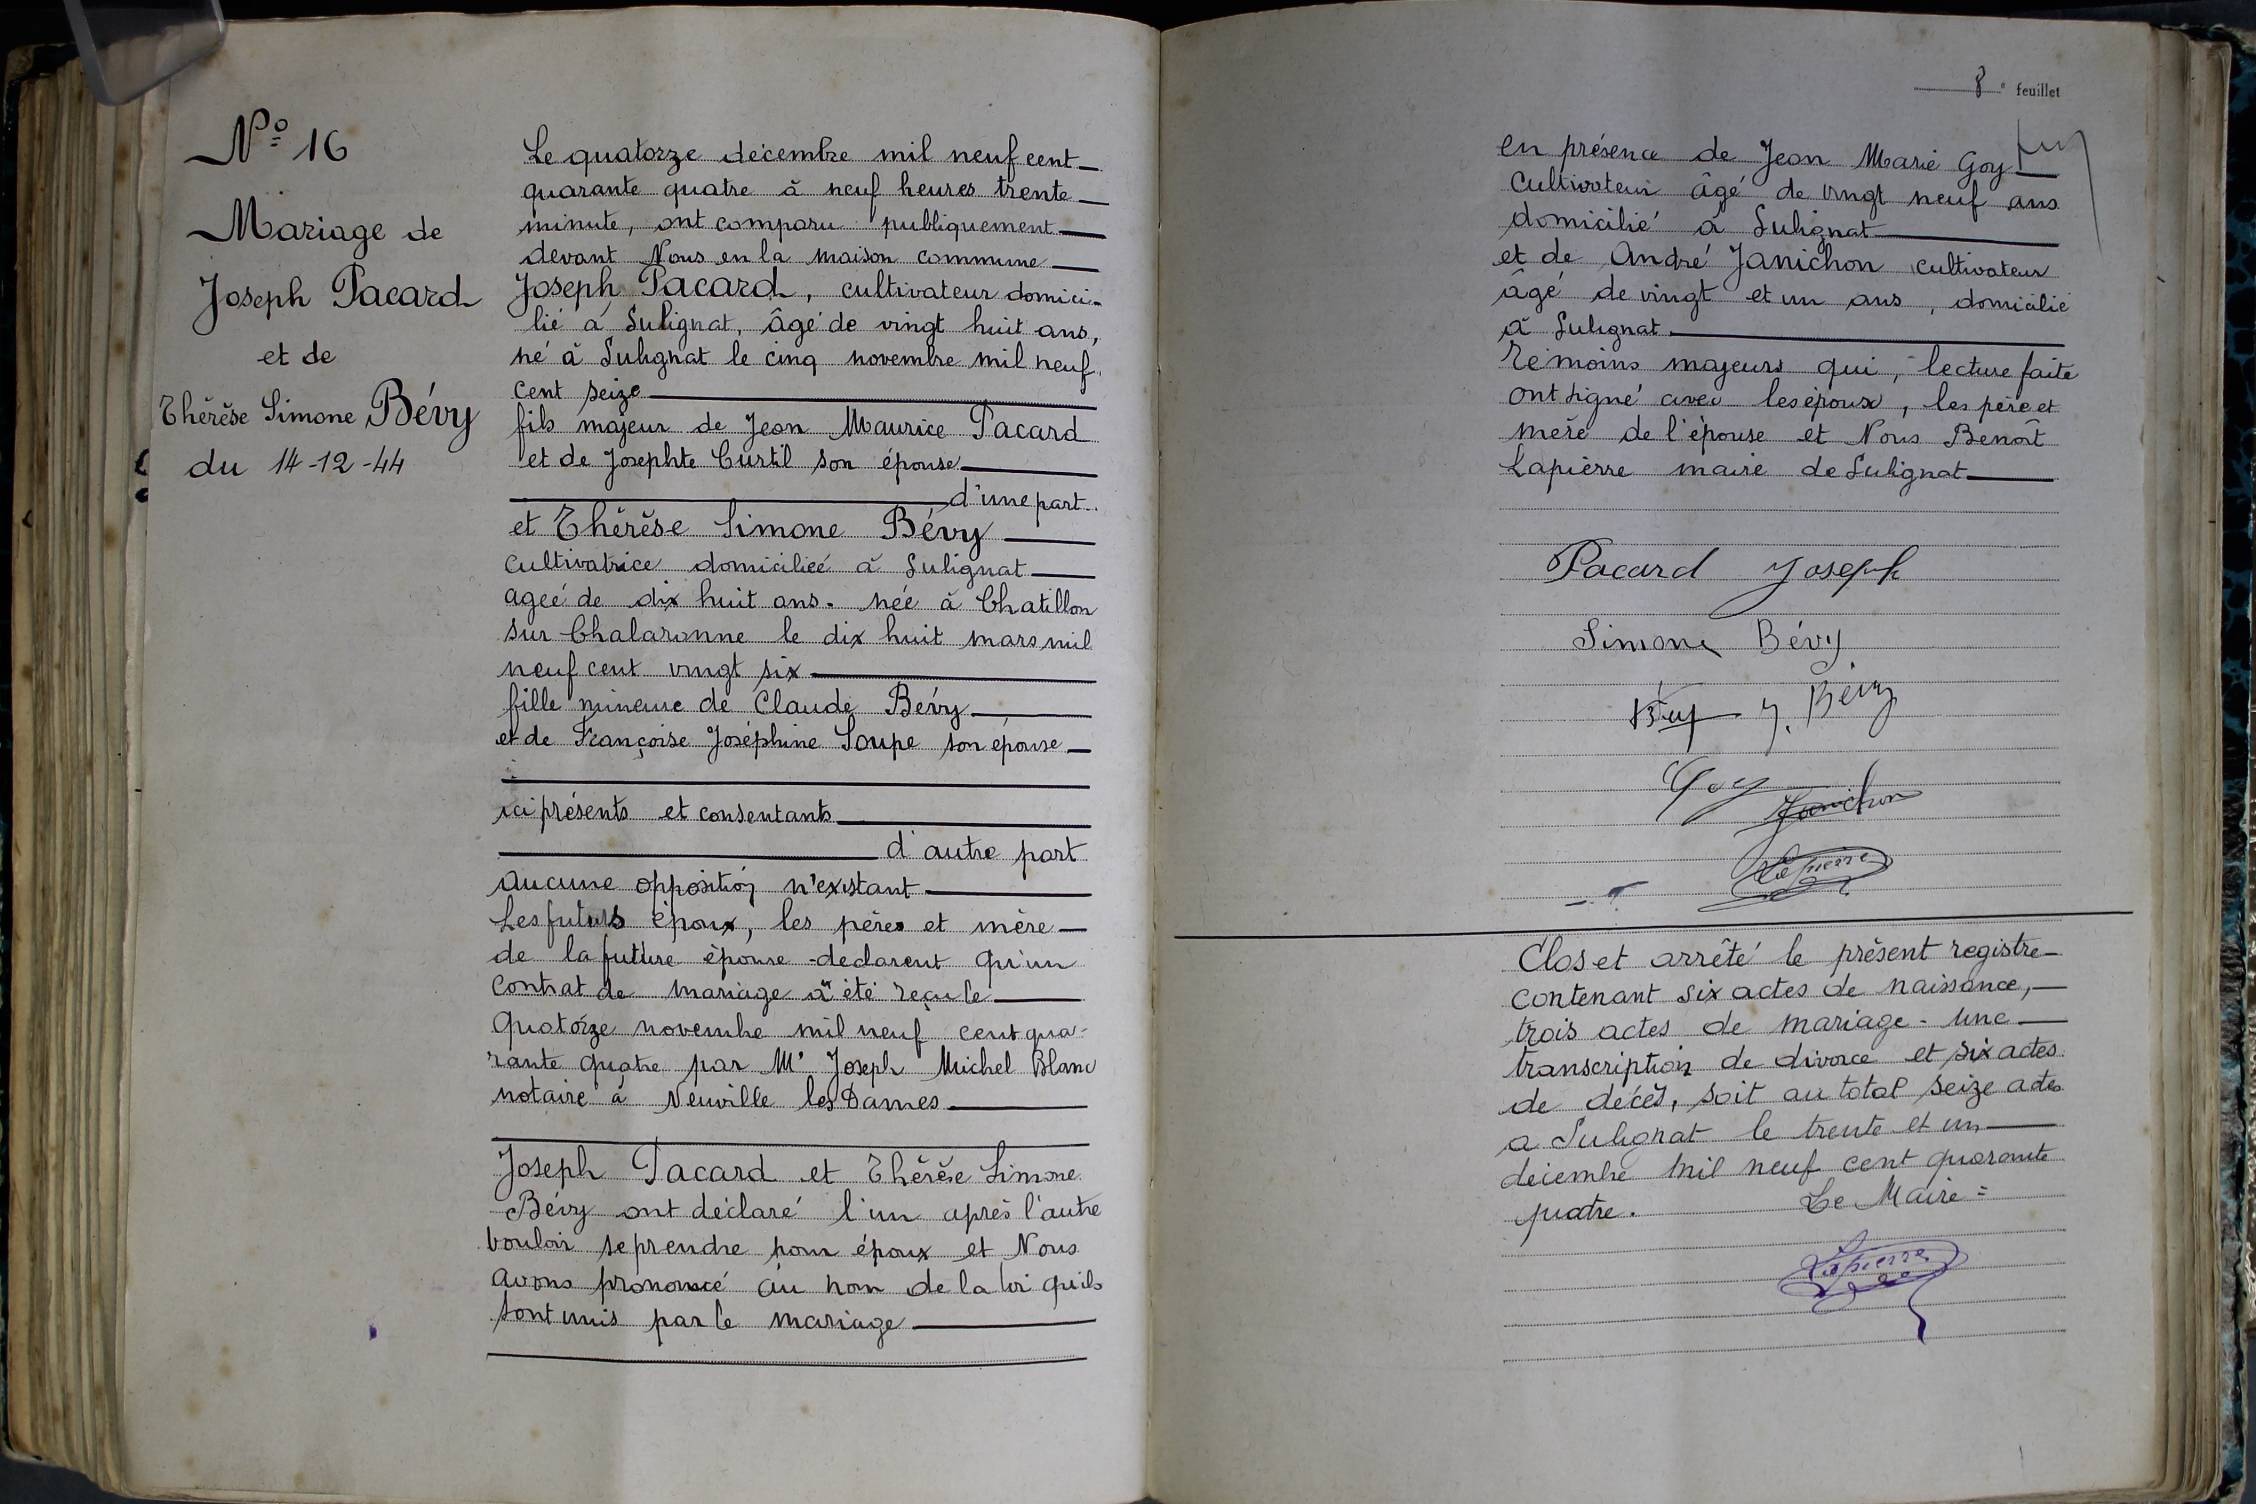 N° 16
Mariage de
Joseph Pacard
et de
Thérèse Simone Bévy
du 14-12-44
Le quatorze décembre mil neuf cent
quarante quatre à neuf heures trente
minute, ont comparu publiquement
devant Nous en la maison commune
Joseph Pacard, cultivateur domici-
lié à Sulignat, âgé de vingt huit ans,
né à Sulignat le cinq novembre mil neuf
cent seize
fils majeur de Jean Maurice Pacard
et de Josephte Curtil son épouse
d'une part.
et Thérèse Simone Bévy
cultivatrice domiciliée à Sulignat
agée de dix huit ans. née à Chatillon
sur Chalaronne le dix huit mars mil
neuf cent vingt six
fille mineure de Claude Bévy
et de Françoise Joséphine Soupe son épouse
ici présents et consentants
d'autre part
Aucune opposition n'existant
Les futurs époux, les pères et mère
de la future épouse déclarent qu'un
contrat de mariage a été reçu le
Quatorze novembre mil neuf cent qua-
rante quatre par Me Joseph Michel Blanc
notaire à Neuville les Dames
Joseph Pacard et Thérèse Simone
Bévy ont déclaré l'un après l'autre
vouloir se prendre pour époux et Nous
avons prononcé au nom de la loi qu'ils
sont unis par le mariage
8e feuillet
en présence de Jean Marie Goy
cultivateur âgé de vingt neuf ans
domicilié à Sulignat
et de André Janichon cultivateur
âgé de vingt et un ans, domicilié
à Sulignat
témoins majeurs qui, lecture faite
ont signé avec les époux, les père et
mère de l'épouse et Nous Benoît
Lapierre maire de Sulignat
Pacard Joseph
Simone Bévy
Bévy J. Bévy
Goy
Janichon
Lapierre
Clos et arrêté le présent registre
contenant six actes de naissance,
trois actes de mariage - une
transcription de divorce et six actes
de décès, soit au total seize actes
a Sulignat le trente et un
décembre mil neuf cent quarante
quatre. Le Maire =
Lapierre